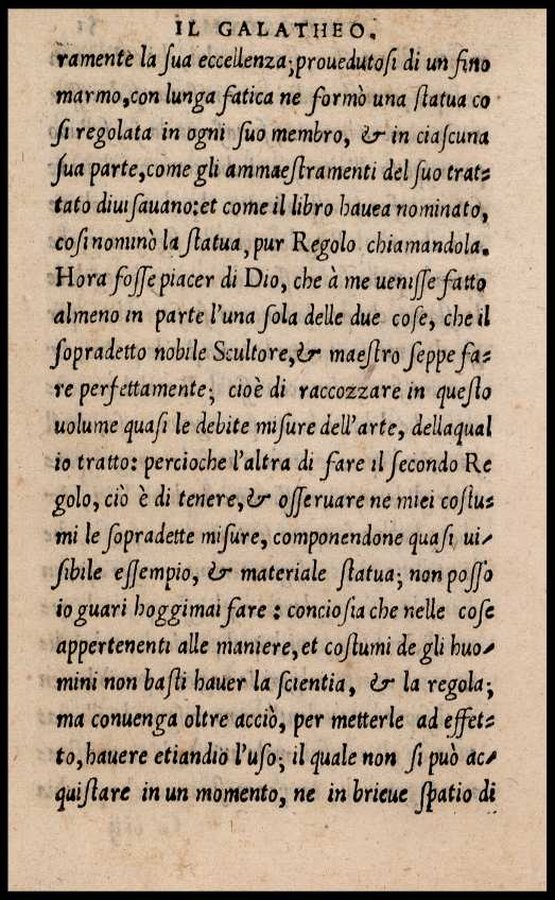 IL GALATHEO.
ramente la ſua eccellenza; prouedutoſi di un fino
marmo, con lunga fatica ne formò una ſtatua co
ſi regolata in ogni ſuo membro, & in ciaſcuna
ſua parte, come gli ammaeſtramenti del ſuo trat⸗
tato diuiſauano: et come il libro hauea nominato,
coſi nominò la ſtatua, pur Regolo chiamandola.
Hora foſſe piacer di Dio, che à me ueniſſe fatto
almeno in parte l'una ſola delle due coſe, che il
ſopradetto nobile Scultore, & maeſtro ſeppe fa⸗
re perfettamente; cioè di raccozzare in queſto
uolume quaſi le debite miſure dell'arte, dellaqual
io tratto: percioche l'altra di fare il ſecondo Re
golo, ciò è di tenere, & oſſeruare ne miei coſtu⸗
mi le ſopradette miſure, componendone quaſi ui-
ſibile eſſempio, & materiale ſtatua; non poſſo
io guari hoggimai fare : concioſia che nelle coſe
appertenenti alle maniere, et coſtumi de gli huo-
mini non baſti hauer la ſcientia, & la regola;
ma conuenga oltre acciò, per metterle ad effet⸗
to, hauere etiandio l'uſo; il quale non ſi può ac-
quiſtare in un momento, ne in brieue ſpatio di